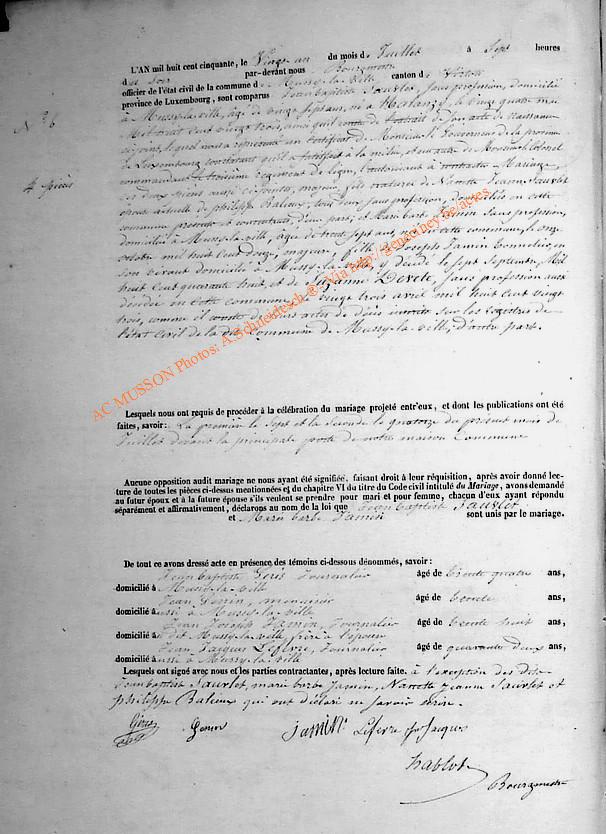 L'AN mil huit cent cinquante, le Vingt un du mois de Juillet à Sept heures
du soir par-devant nous Bourgmestre
officier de l'état civil de la commune de Mussy-la-ville canton de Virton
province de Luxembourg, sont comparus Jean Baptiste Saurlet, sans profession, domicilié
à Mussy-la-ville, âgé de vingt sept ans, né à Halanzy, le vingt quatre mai
N° 6
mil huit cent vingt trois, ainsi qu'il conste de l'extrait de son acte de naissance
ci-joint, lequel nous a représenté un certificat de Monsieur le Gouverneur de la province
de Luxembourg constatant qu'il a satisfait à la milice, et un autre de Monsieur le Colonel
4 pièces
commandant le troisième régiment de ligne, l'autorisant à contracter Mariage,
ces deux pièces aussi ci-jointes, majeur, fils naturel de Nanette Jeanne Saurlet
épouse actuelle de philippe Baleux, tous deux sans profession, domiciliés en cette
commune présents et consentants, d'une part; et Marie barbe Jamin Sans profession,
domiciliée à Mussy-la-ville, âgée de trente sept ans, née en cette commune, le onze
octobre mil huit cent douze, majeure, fille de Joseph Jamin Tonnelier, en
son vivant domicilié à Mussy-la-ville, y décédé le sept Septembre Mil
huit cent quarante huit, et de Suzanne Devete, sans profession aussi
décédée en cette commune le vingt trois avril mil huit cent vingt
trois, comme il conste de leurs actes de décès inscrits sur les registres de
l'état civil de la dite Commune de Mussy-la-ville, d'autre part.
AC MUSSON Photos: A.Schneidesch ®: Via http://geneancey.be/actes
Lesquels nous ont requis de procéder à la célébration du mariage projeté entr'eux, et dont les publications ont été
faites, savoir: La première le Sept et la Seconde le quatorze du présent mois de
Juillet devant la principale porte de notre maison Commune
Aucune opposition audit mariage ne nous ayant été signifiée, faisant droit à leur réquisition, après avoir donné lec-
ture de toutes les pièces ci-dessus mentionnées et du chapitre VI du titre du Code civil intitulé du Mariage, avons demandé
au futur époux et à la future épouse s'ils veulent se prendre pour mari et pour femme, chacun d'eux ayant répondu
séparément et affirmativement, déclarons au nom de la loi que Jean baptist Saurlet
et Marie barbe Jamin sont unis par le mariage.
De tout ce avons dressé acte en présence des témoins ci-dessous dénommés, savoir:
Jean baptiste Journalier âgé de trente quatre ans,
domicilié à Mussy-la-ville
Jean menuisier âgé de trente ans,
domicilié aussi à Mussy-la-ville
Jean Joseph Jamin, Journalier âgé de trente huit ans,
domicilié à dit Mussy-la-ville frère à l'épouse
Jean Jaques Lefevre, Journalier âgé de quarante deux ans,
domicilié aussi à Mussy-la-ville
Lesquels ont signé avec nous et les parties contractantes, après lecture faite. à l'exception des dits
Jean baptist Saurlet, marie barbe Jamin, Nanette Jeanne Saurlet et
philippe Baleux qui ont déclaré ne savoir écrire.
jamin Lefevre Jaques
hablot
Bourgmestre